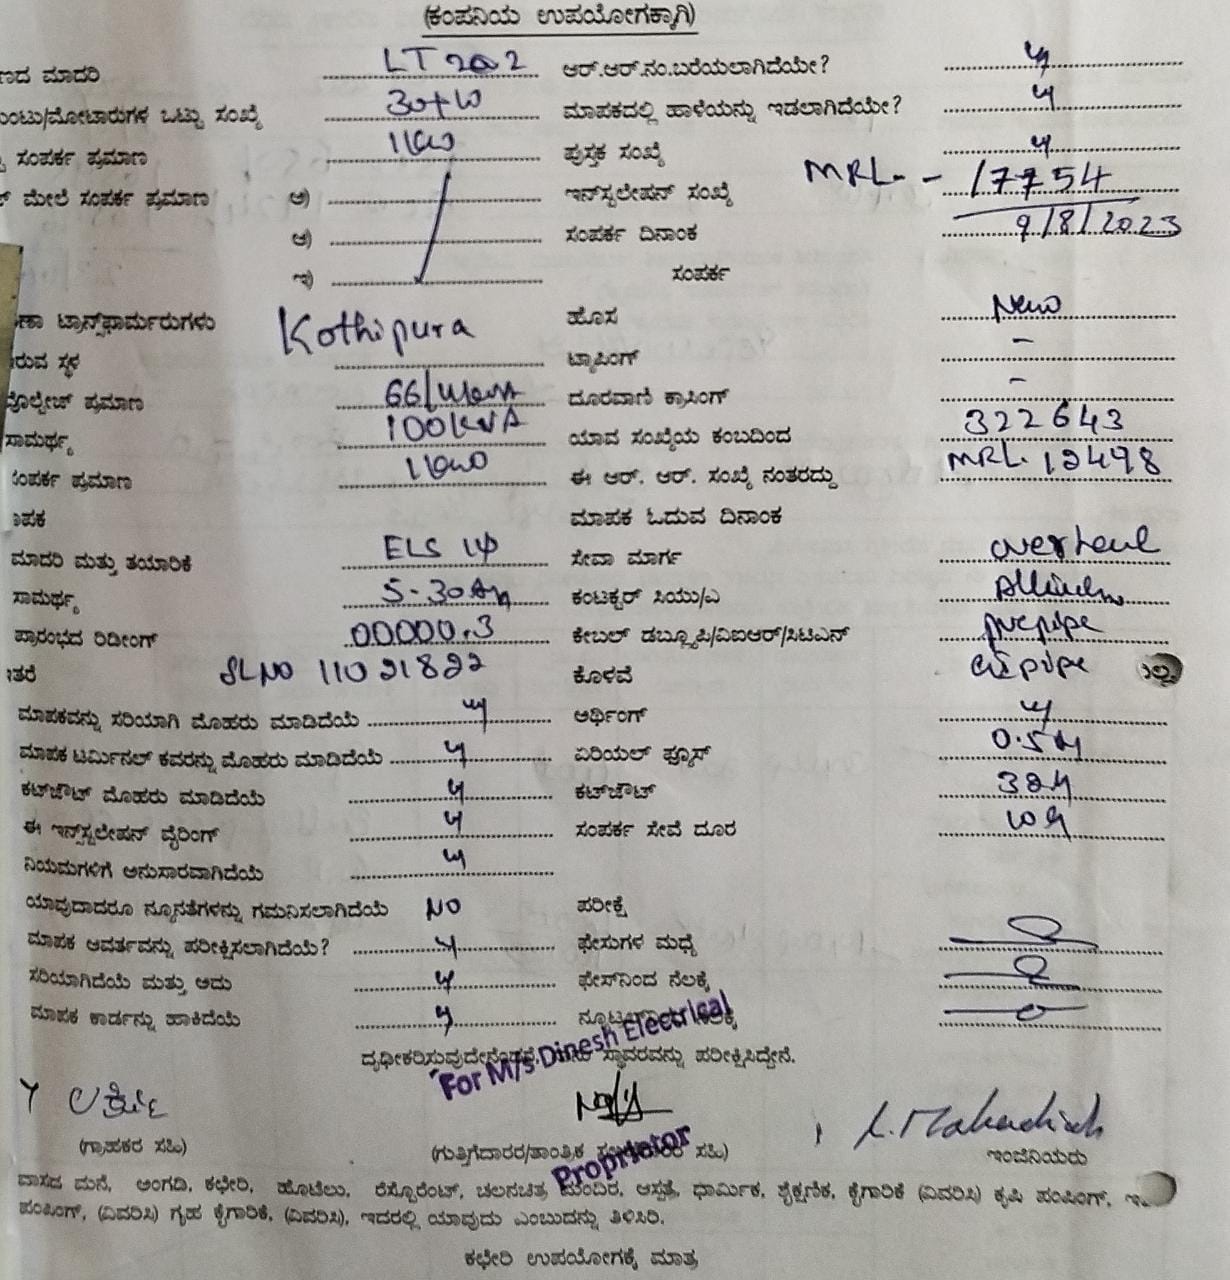 (ಕಂಪನಿಯ ಉಪಯೋಗಕ್ಕಾಗಿ)
ಮಾದರಿ LT 2a2 ಆರ್.ಆರ್.ನಂ.ಬರೆಯಲಾಗಿದೆಯೇ? y
ಒಟ್ಟು ಸಂಖ್ಯೆ ಮಾಪಕದಲ್ಲಿ ಹಾಳೆಯನ್ನು ಇಡಲಾಗಿದೆಯೇ? y
ಸಂಪರ್ಕ ಪ್ರಮಾಣ 1kw ಪುಸ್ತಕ ಸಂಖ್ಯೆ y
ಮೇಲೆ ಸಂಪರ್ಕ ಪ್ರಮಾಣ ಅ) ಇನ್‌ಸ್ಟಲೇಷನ್ ಸಂಖ್ಯೆ MRL - 17754
ಆ) ಸಂಪರ್ಕ ದಿನಾಂಕ 9/8/2023
ಇ) ಸಂಪರ್ಕ
ಟ್ರಾನ್ಸ್‌ಫಾರ್ಮರುಗಳು Kothipura ಹೊಸ New
ಸ್ಥಳ ಟ್ಯಾಪಿಂಗ್ -
ಪ್ರಮಾಣ ದೂರವಾಣಿ ಕ್ರಾಸಿಂಗ್ -
ಸಾಮರ್ಥ್ಯ 100kVA ಯಾವ ಸಂಖ್ಯೆಯ ಕಂಬದಿಂದ 322643
ಸಂಪರ್ಕ ಪ್ರಮಾಣ 1kw ಈ ಆರ್. ಆರ್. ಸಂಖ್ಯೆ ನಂತರದ್ದು MRL 12498
ಮಾಪಕ ಓದುವ ದಿನಾಂಕ
ಮಾದರಿ ಮತ್ತು ತಯಾರಿಕೆ ELS 1φ ಸೇವಾ ಮಾರ್ಗ
ಸಾಮರ್ಥ್ಯ 5-30 ಕಂಟಕ್ಟರ್ ಸಿಯು/ಎ
ಪ್ರಾರಂಭದ ರಿಡೀಂಗ್ 00000.3 ಕೇಬಲ್ ಡಬ್ಲ್ಯೂಪಿ/ವಿಐಆರ್/ಸಿಟಿಎಸ್ pvc pipe
SLNO 11021822 ಕೊಳವೆ
ಮಾಪಕವನ್ನು ಸರಿಯಾಗಿ ಮೊಹರು ಮಾಡಿದೆಯೆ y ಅರ್ಥಿಂಗ್ y
ಮಾಪಕ ಟರ್ಮಿನಲ್ ಕವರನ್ನು ಮೊಹರು ಮಾಡಿದೆಯೆ y ಏರಿಯಲ್ ಫ್ಯೂಸ್
ಕಟ್‌ಔಟ್ ಮೊಹರು ಮಾಡಿದೆಯೆ y ಕಟ್‌ಔಟ್
ಈ ಇನ್‌ಸ್ಟಲೇಷನ್ ವೈರಿಂಗ್ y ಸಂಪರ್ಕ ಸೇವೆ ದೂರ
ನಿಯಮಗಳಿಗೆ ಅನುಸಾರವಾಗಿದೆಯೆ y
ಯಾವುದಾದರೂ ನ್ಯೂನತೆಗಳನ್ನು ಗಮನಿಸಲಾಗಿದೆಯೆ NO ಪರೀಕ್ಷೆ
ಮಾಪಕ ಆವರ್ತವನ್ನು ಪರೀಕ್ಷಿಸಲಾಗಿದೆಯೆ? y ಫೇಸುಗಳ ಮಧ್ಯೆ
ಸರಿಯಾಗಿದೆಯೆ ಮತ್ತು ಅದು y ಫೇಸ್‌ನಿಂದ ನೆಲಕ್ಕೆ
ಮಾಪಕ ಕಾರ್ಡನ್ನು ಹಾಕಿದೆಯೆ y
ಸ್ಥಾವರವನ್ನು ಪರೀಕ್ಷಿಸಿದ್ದೇನೆ.
For M/s Dinesh Electrical
(ಗ್ರಾಹಕರ ಸಹಿ) (ಗುತ್ತಿಗೆದಾರರ/ತಾಂತ್ರಿಕ ಸಹಿ) ಇಂಜಿನಿಯರು
Proprietor
ವಾಸದ ಮನೆ, ಅಂಗಡಿ, ಕಛೇರಿ, ಹೊಟೆಲು, ರೆಸ್ಟೊರೆಂಟ್, ಚಲನಚಿತ್ರ ಮಂದಿರ, ಆಸ್ಪತ್ರೆ, ಧಾರ್ಮಿಕ, ಶೈಕ್ಷಣಿಕ, ಕೈಗಾರಿಕೆ (ವಿವರಿಸಿ) ಕೃಷಿ ಪಂಪಿಂಗ್,
ಪಂಪಿಂಗ್, (ವಿವರಿಸಿ) ಗೃಹ ಕೈಗಾರಿಕೆ, (ವಿವರಿಸಿ), ಇದರಲ್ಲಿ ಯಾವುದು ಎಂಬುದನ್ನು ತಿಳಿಸಿರಿ.
ಕಛೇರಿ ಉಪಯೋಗಕ್ಕೆ ಮಾತ್ರ